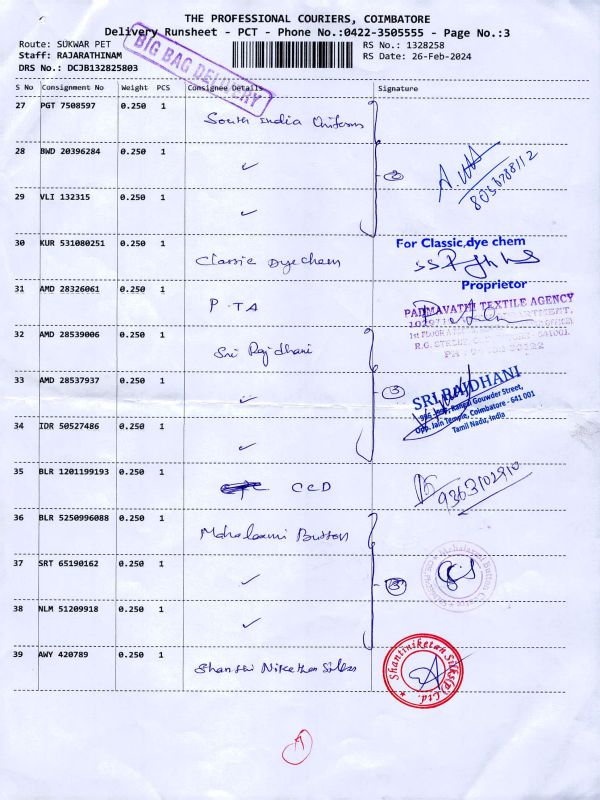 THE PROFESSIONAL COURIERS, COIMBATORE
Delivery Runsheet - PCT - Phone No.:0422-3505555 - Page No.:3
Route: SUKWAR PET
RS No.: 1328258
Staff: RAJARATHINAM
RS Date: 26-Feb-2024
DRS No.: DCJB132825803
BIG BAG DELIVERY
S No Consignment No Weight PCS Consignee Details Signature
27 PGT 7508597 0.250 1 South India Uniforms
28 BWD 20396284 0.250 1 ✓ ②
8056788112
29 VLI 132315 0.250 1 ✓
30 KUR 531080251 0.250 1 Classic Dye chem
For Classic dye chem
Proprietor
31 AMD 28326061 0.250 1 P.TA
PADMAVATHI TEXTILE AGENCY
32 AMD 28539006 0.250 1 Sri Rajdhani
33 AMD 28537937 0.250 1 ✓ ③
SRI RAJDHANI
Rangai Gowder Street,
Opp. Jain Temple, Coimbatore - 641 001
Tamil Nadu, India
34 IDR 50527486 0.250 1 ✓
35 BLR 1201199193 0.250 1 CCD
9363102910
36 BLR 5250996088 0.250 1 Mahalaxmi Button
37 SRT 65190162 0.250 1 ✓ ③
38 NLM 51209918 0.250 1 ✓
39 AWY 420789 0.250 1 Shanthi Nikethan Silks
Shantiniketan Silks (P) Ltd.